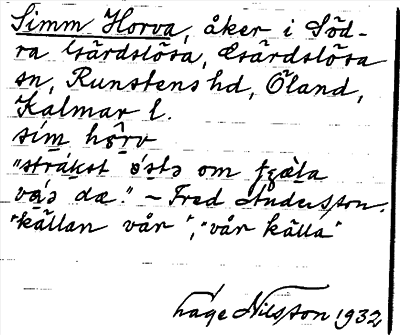 Simm Horva, åker i Söd-
ra Gärdslösa, Gärdslösa
sn, Runstens hd, Öland,
Kalmar l.
sím hǫ̂rv
"strákst ǿstə om
vǻ́ə dæ." – Fred Andersson.
"källan vår", "vår källa"
Nilsson 1932